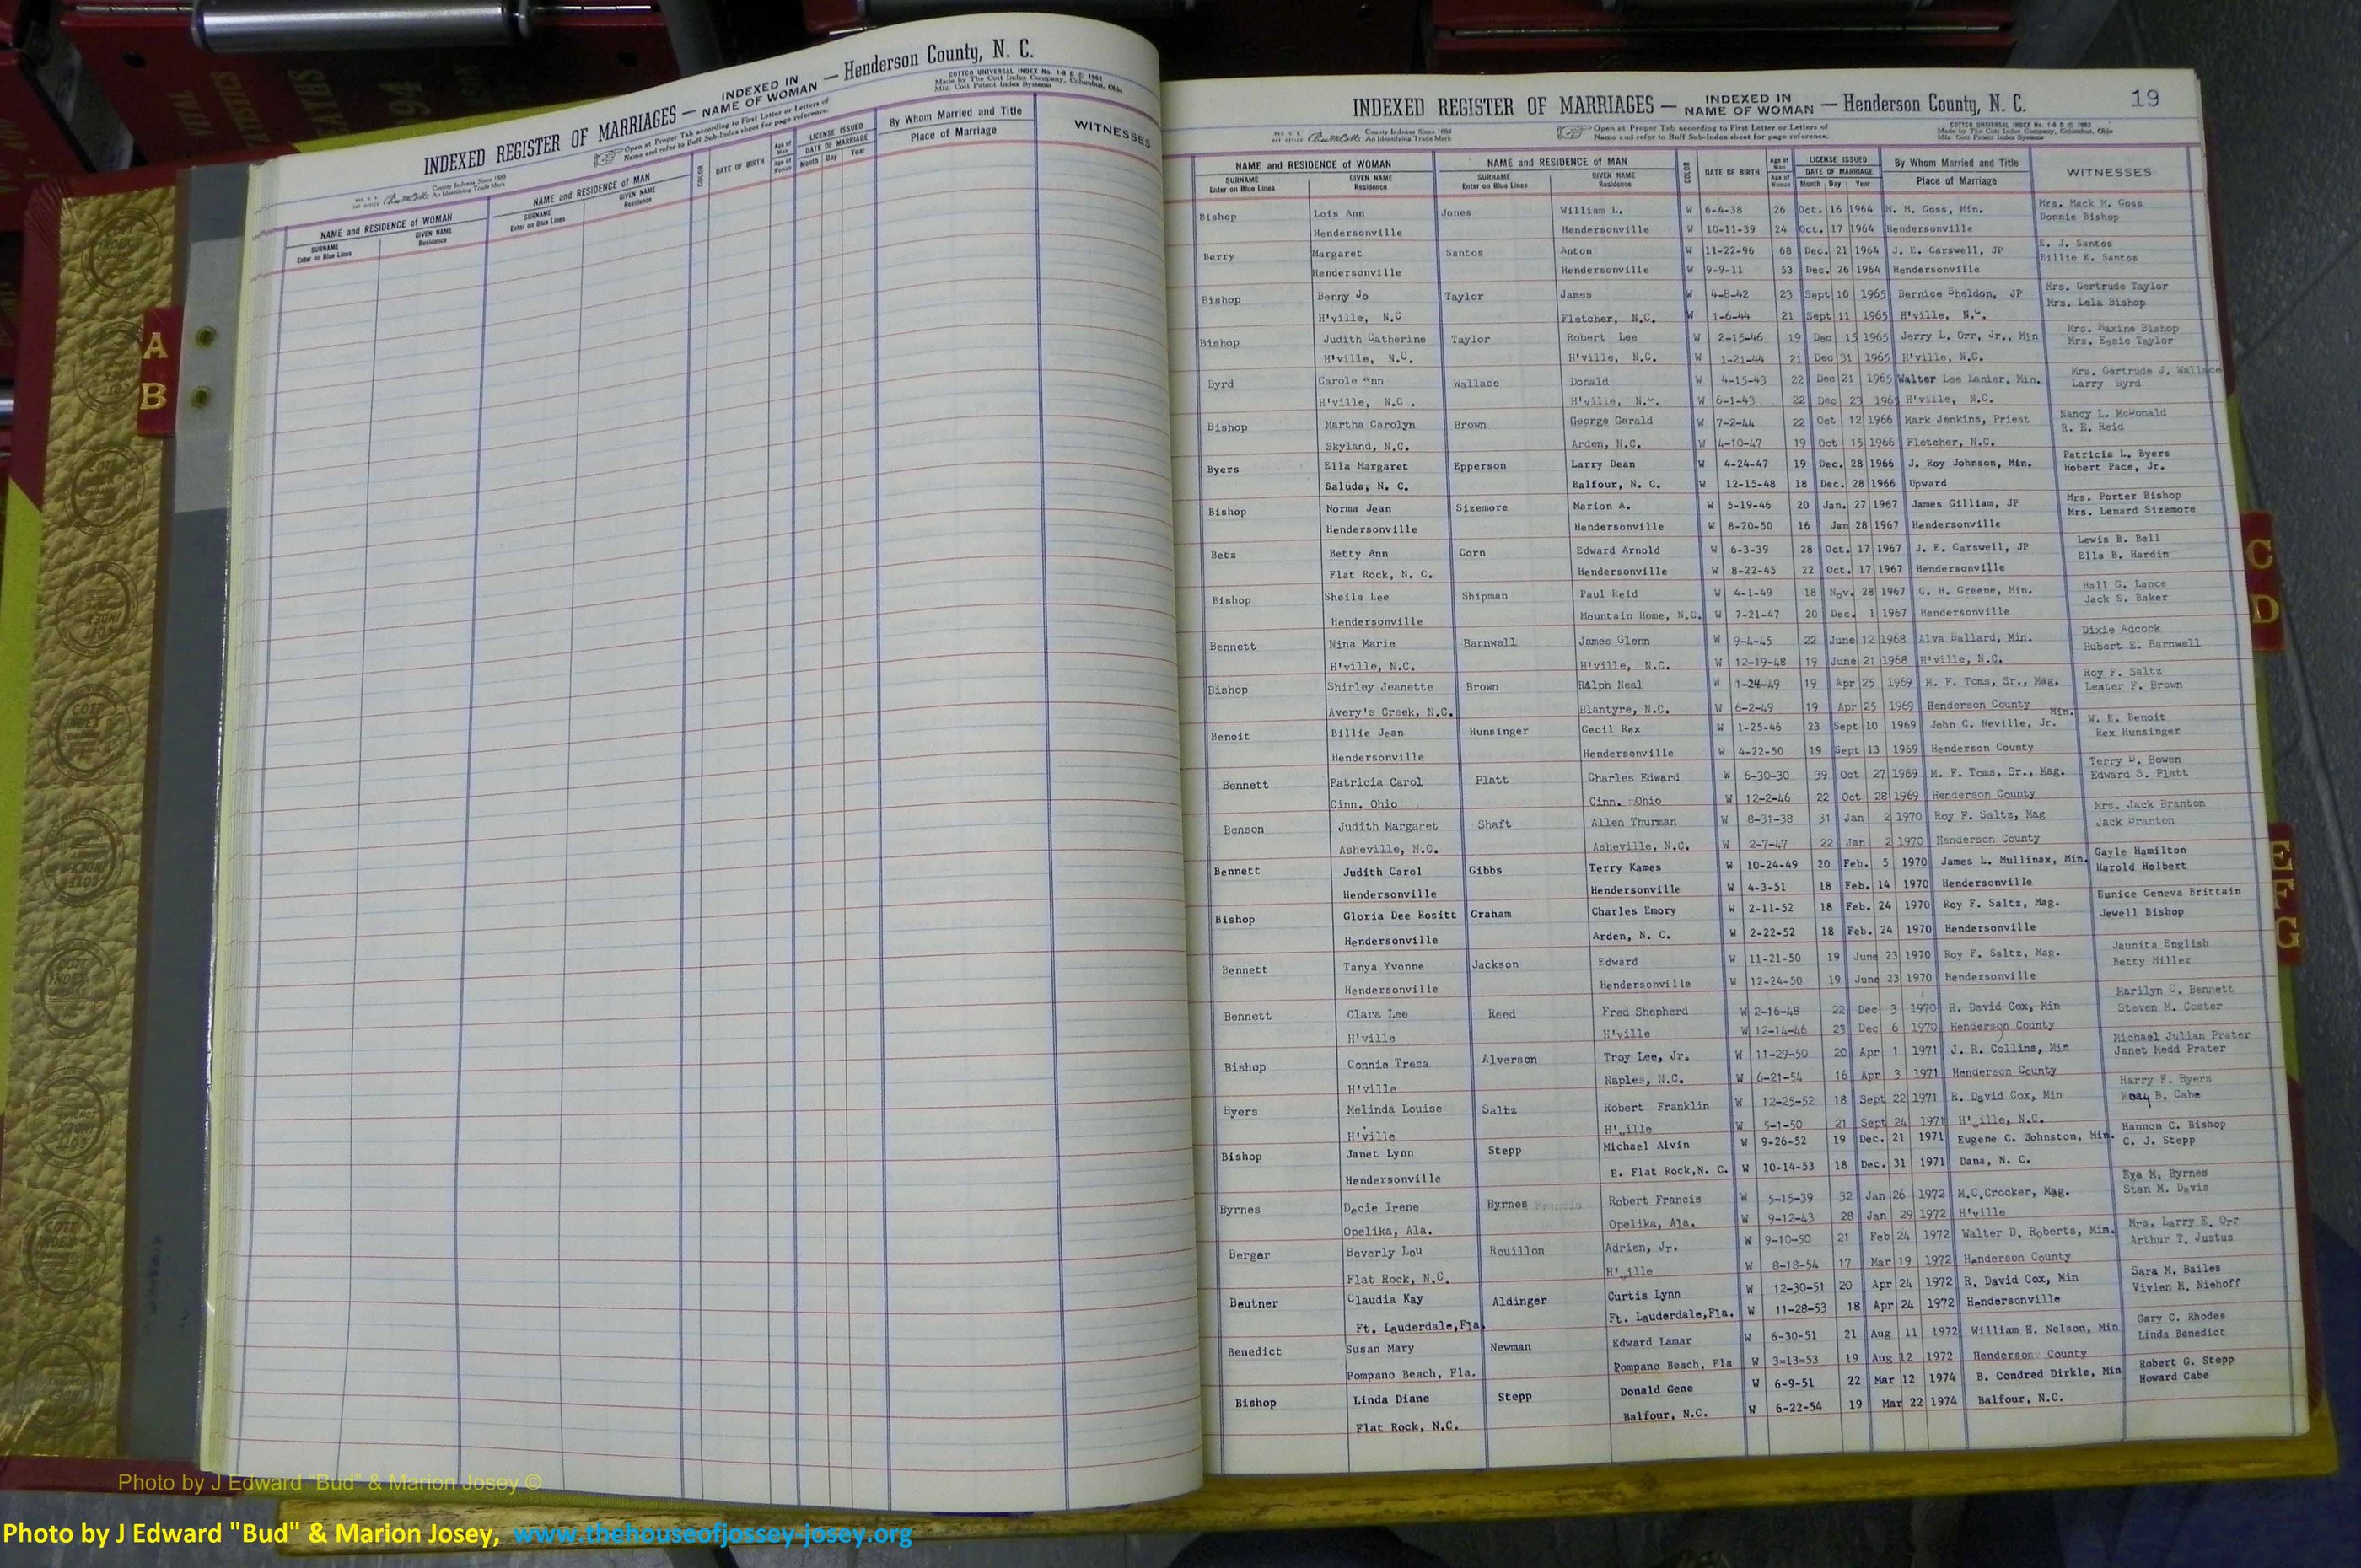 INDEXED REGISTER OF MARRIAGES — INDEXED IN NAME OF WOMAN — Henderson County, N. C.
County Indexes Since 1888
An Identifying Trade Mark
Open at Proper Tab according to First Letter or Letters of
Name and refer to Buff Sub-Index sheet for page reference.
COTTCO UNIVERSAL INDEX No. 1-8 D © 1962
Made by The Cott Index Company, Columbus, Ohio
Mfg. Cott Patent Index Systems
NAME and RESIDENCE of WOMAN NAME and RESIDENCE of MAN COLOR DATE OF BIRTH Age of Man LICENSE ISSUED By Whom Married and Title WITNESSES
SURNAME GIVEN NAME SURNAME GIVEN NAME Age of Woman DATE OF MARRIAGE Place of Marriage
Enter on Blue Lines Residence Enter on Blue Lines Residence Month Day Year
A
B
INDEXED REGISTER OF MARRIAGES — INDEXED IN NAME OF WOMAN — Henderson County, N. C. 19
County Indexes Since 1888
An Identifying Trade Mark
Open at Proper Tab according to First Letter or Letters of
Name and refer to Buff Sub-Index sheet for page reference.
COTTCO UNIVERSAL INDEX No. 1-8 D © 1962
Made by The Cott Index Company, Columbus, Ohio
Mfg. Cott Patent Index Systems
NAME and RESIDENCE of WOMAN NAME and RESIDENCE of MAN COLOR DATE OF BIRTH Age of Man LICENSE ISSUED By Whom Married and Title WITNESSES
SURNAME GIVEN NAME SURNAME GIVEN NAME Age of Woman DATE OF MARRIAGE Place of Marriage
Enter on Blue Lines Residence Enter on Blue Lines Residence Month Day Year
Bishop Lois Ann Jones William L. W 6-4-38 26 Oct. 16 1964 M. M. Goss, Min. Mrs. Mack M. Goss
Hendersonville Hendersonville W 10-11-39 24 Oct. 17 1964 Hendersonville Donnie Bishop
Berry Margaret Santos Anton W 11-22-96 68 Dec. 21 1964 J. E. Carswell, JP E. J. Santos
Hendersonville Hendersonville W 9-9-11 53 Dec. 26 1964 Hendersonville Billie K. Santos
Bishop Benny Jo Taylor James W 4-8-42 23 Sept 10 1965 Bernice Sheldon, JP Mrs. Gertrude Taylor
H'ville, N.C Fletcher, N.C. W 1-6-44 21 Sept 11 1965 H'ville, N.C. Mrs. Lela Bishop
Bishop Judith Catherine Taylor Robert Lee W 2-15-46 19 Dec 15 1965 Jerry L. Orr, Jr., Min Mrs. Maxine Bishop
H'ville, N.C. H'ville, N.C. W 1-21-44 21 Dec 31 1965 H'ville, N.C. Mrs. Essie Taylor
Byrd Carole Ann Wallace Donald W 4-15-43 22 Dec 21 1965 Walter Lee Lanier, Min. Mrs. Gertrude J. Wallace
H'ville, N.C. H'ville, N.C. W 6-1-43 22 Dec 23 1965 H'ville, N.C. Larry Byrd
Bishop Martha Carolyn Brown George Gerald W 7-2-44 22 Oct 12 1966 Mark Jenkins, Priest Nancy L. McDonald
Skyland, N.C. Arden, N.C. W 4-10-47 19 Oct 15 1966 Fletcher, N.C. R. E. Reid
Byers Ella Margaret Epperson Larry Dean W 4-24-47 19 Dec. 28 1966 J. Roy Johnson, Min. Patricia L. Byers
Saluda, N. C. Balfour, N. C. W 12-15-48 18 Dec. 28 1966 Upward Hobert Pace, Jr.
Bishop Norma Jean Sizemore Marion A. W 5-19-46 20 Jan. 27 1967 James Gilliam, JP Mrs. Porter Bishop
Hendersonville Hendersonville W 8-20-50 16 Jan 28 1967 Hendersonville Mrs. Lenard Sizemore
Betz Betty Ann Corn Edward Arnold W 6-3-39 28 Oct. 17 1967 J. E. Carswell, JP Lewis B. Bell
Flat Rock, N. C. Hendersonville W 8-22-45 22 Oct. 17 1967 Hendersonville Ella B. Hardin
Bishop Sheila Lee Shipman Paul Reid W 4-1-49 18 Nov. 28 1967 C. H. Greene, Min. Hall G. Lance
Hendersonville Mountain Home, N.C. W 7-21-47 20 Dec. 1 1967 Hendersonville Jack S. Baker
Bennett Nina Marie Barnwell James Glenn W 9-4-45 22 June 12 1968 Alva Ballard, Min. Dixie Adcock
H'ville, N.C. H'ville, N.C. W 12-19-48 19 June 21 1968 H'ville, N.C. Hubert E. Barnwell
Bishop Shirley Jeanette Brown Ralph Neal W 1-24-49 19 Apr 25 1969 M. F. Toms, Sr., Mag. Roy F. Saltz
Avery's Creek, N.C. Blantyre, N.C. W 6-2-49 19 Apr 25 1969 Henderson County Lester F. Brown
Benoit Billie Jean Hunsinger Cecil Rex W 1-25-46 23 Sept 10 1969 John C. Neville, Jr. Min. W. E. Benoit
Hendersonville Hendersonville W 4-22-50 19 Sept 13 1969 Henderson County Rex Hunsinger
Bennett Patricia Carol Platt Charles Edward W 6-30-30 39 Oct 27 1969 M. F. Toms, Sr., Mag. Terry D. Bowen
Cinn. Ohio Cinn. Ohio W 12-2-46 22 Oct 28 1969 Henderson County Edward S. Platt
Benson Judith Margaret Shaft Allen Thurman W 8-31-38 31 Jan 2 1970 Roy F. Saltz, Mag Mrs. Jack Branton
Asheville, N.C. Asheville, N.C. W 2-7-47 22 Jan 2 1970 Henderson County Jack Branton
Bennett Judith Carol Gibbs Terry Kames W 10-24-49 20 Feb. 5 1970 James L. Mullinax, Min. Gayle Hamilton
Hendersonville Hendersonville W 4-3-51 18 Feb. 14 1970 Hendersonville Harold Holbert
Bishop Gloria Dee Rositt Graham Charles Emory W 2-11-52 18 Feb. 24 1970 Roy F. Saltz, Mag. Eunice Geneva Brittain
Hendersonville Arden, N. C. W 2-22-52 18 Feb. 24 1970 Hendersonville Jewell Bishop
Bennett Tanya Yvonne Jackson Edward W 11-21-50 19 June 23 1970 Roy F. Saltz, Mag. Jaunita English
Hendersonville Hendersonville W 12-24-50 19 June 23 1970 Hendersonville Betty Miller
Bennett Clara Lee Reed Fred Shepherd W 2-16-48 22 Dec 3 1970 R. David Cox, Min Marilyn C. Bennett
H'ville H'ville W 12-14-46 23 Dec 6 1970 Henderson County Steven M. Coster
Bishop Connie Tresa Alverson Troy Lee, Jr. W 11-29-50 20 Apr 1 1971 J. R. Collins, Min Michael Julian Prater
H'ville Naples, N.C. W 6-21-54 16 Apr 3 1971 Henderson County Janet Medd Prater
Byers Melinda Louise Saltz Robert Franklin W 12-25-52 18 Sept 22 1971 R. David Cox, Min Harry F. Byers
H'ville H'ville W 5-1-50 21 Sept 24 1971 H'ville, N.C. Mary B. Cabe
Bishop Janet Lynn Stepp Michael Alvin W 9-26-52 19 Dec. 21 1971 Eugene C. Johnston, Min. Hannon C. Bishop
Hendersonville E. Flat Rock,N. C. W 10-14-53 18 Dec. 31 1971 Dana, N. C. C. J. Stepp
Byrnes Dacie Irene Byrnes Robert Francis W 5-15-39 32 Jan 26 1972 M.C.Crocker, Mag. Eya M. Byrnes
Opelika, Ala. Opelika, Ala. W 9-12-43 28 Jan 29 1972 H'ville Stan M. Davis
Berger Beverly Lou Rouillon Adrien, Jr. W 9-10-50 21 Feb 24 1972 Walter D. Roberts, Min. Mrs. Larry E. Orr
Flat Rock, N.C. H'ville W 8-18-54 17 Mar 19 1972 Henderson County Arthur T. Justus
Beutner Claudia Kay Aldinger Curtis Lynn W 12-30-51 20 Apr 24 1972 R. David Cox, Min Sara M. Bailes
Ft. Lauderdale,Fla. Ft. Lauderdale,Fla. W 11-28-53 18 Apr 24 1972 Hendersonville Vivien M. Niehoff
Benedict Susan Mary Newman Edward Lamar W 6-30-51 21 Aug 11 1972 William E. Nelson, Min Gary C. Rhodes
Pompano Beach, Fla. Pompano Beach, Fla W 3=13=53 19 Aug 12 1972 Henderson County Linda Benedict
Bishop Linda Diane Stepp Donald Gene W 6-9-51 22 Mar 12 1974 B. Condred Dirkle, Min Robert G. Stepp
Flat Rock, N.C. Balfour, N.C. W 6-22-54 19 Mar 22 1974 Balfour, N.C. Howard Cabe
C
D
E
F
G
Photo by J Edward "Bud" & Marion Josey ©
Photo by J Edward "Bud" & Marion Josey, www.thehouseofjossey-josey.org